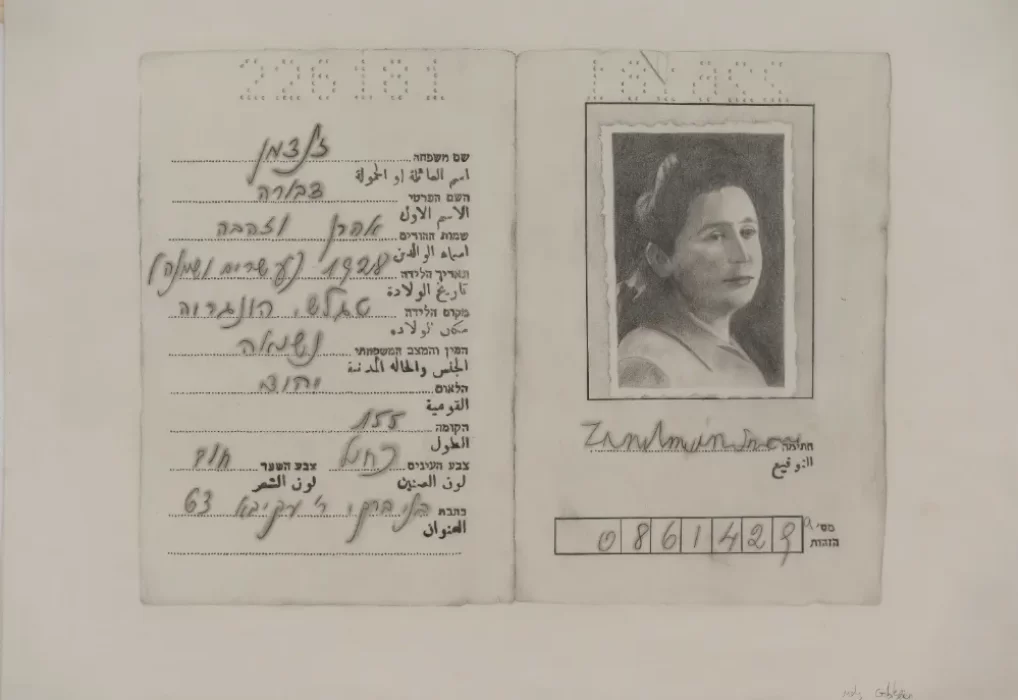 226181
זנדמן שם משפחה
اسم العائلة او الحمولة
דבורה השם הפרטי
الاسم الاول
אהרן וזהבה שמות ההורים
اسماء الوالدين
1928 (עשרים ושמונה) תאריך הלידה
تاريخ الولادة
הונגריה מקום הלידה
مكان الولادة
נשואה המין והמצב המשפחתי
الجنس والحالة المدنية
יהודי הלאום
القومية
155 הקומה
الطول
כחול צבע העינים חום צבע השער
لون العينين لون الشعر
בני ברק, ר' עקיבא כתבת
العنوان
Zandman חתימה
التوقيع
0861429 מס' הזהות